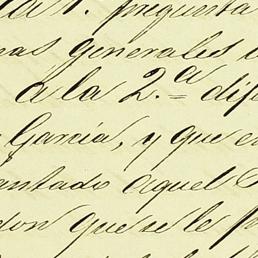 la 1. pregunta
nas generales d
a la 2.ª dijo
García, y que e
antado aquel
don que se le p